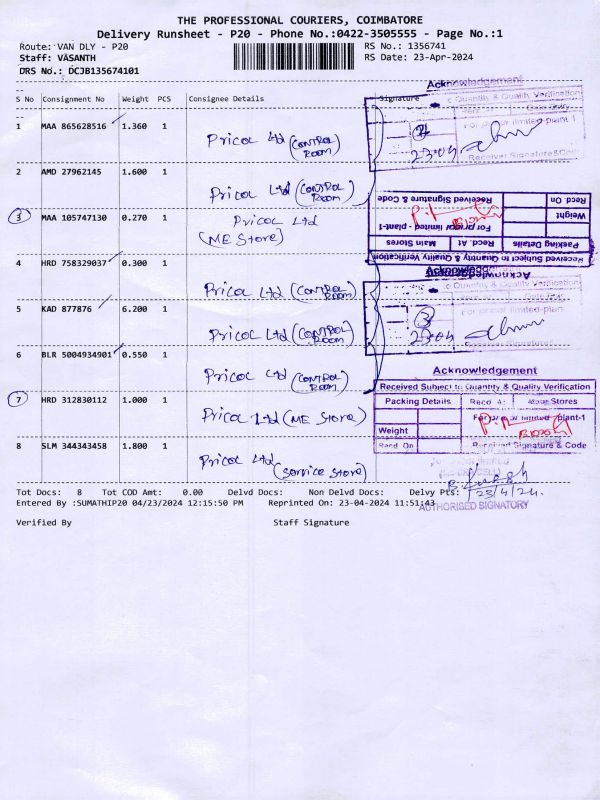 THE PROFESSIONAL COURIERS, COIMBATORE
Delivery Runsheet - P20 - Phone No.:0422-3505555 - Page No.:1
Route: VAN DLY - P20 RS No.: 1356741
Staff: VASANTH RS Date: 23-Apr-2024
DRS No.: DCJB135674101
S No Consignment No Weight PCS Consignee Details Signature
Acknowledgement
& Quantity & Quality Verification
1 MAA 865628516 1.360 1 Pricol Ltd (CONTROL ROOM)
23.04
Receiver Signature & Code
2 AMD 27962145 1.600 1 Pricol Ltd (CONTROL ROOM)
Received Signature & Code Recd. On
3 MAA 105747130 0.270 1 Pricol Ltd (ME Store)
For pricol limited - plant-1 Weight
Main Stores Recd. At Packing Details
Received Subject to Quantity & Quality Verification
4 HRD 758329037 0.300 1 Pricol Ltd (CONTROL ROOM)
Acknowledgement
Quantity & Quality Verification
5 KAD 877876 6.200 1 Pricol Ltd (CONTROL ROOM)
23.04
6 BLR 5004934901 0.550 1 Pricol Ltd (CONTROL ROOM)
Acknowledgement
Received Subject to Quantity & Quality Verification
7 HRD 312830112 1.000 1 Pricol Ltd (ME Store)
Packing Details Recd At Stores
plant-1
Weight
Recd. On Received Signature & Code
8 SLM 344343458 1.800 1 Pricol Ltd (Service Store)
23/4/24.
Tot Docs: 8 Tot COD Amt: 0.00 Delvd Docs: Non Delvd Docs: Delvy Pts:
Entered By :SUMATHIP20 04/23/2024 12:15:50 PM Reprinted On: 23-04-2024 11:51:43
AUTHORISED SIGNATORY
Verified By Staff Signature